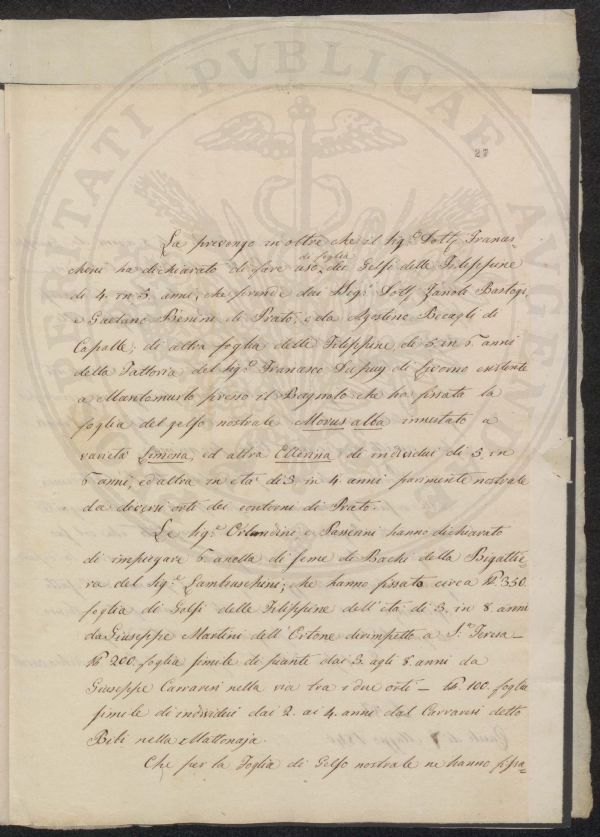 PERITATI PVBLICAE AVGENDAE
27
La prevengo in oltre che il Sig.e Dott. Frances-
chini ha dichiarato di fare uso di foglia dei Gelsi delle Filippine
di 4 in 5 anni, che prende dai Sig.i Dott. Zanobi Bastogi,
e Gaetano Benini di Prato, e da Agostino Becagli di
Capalle; di altra foglia delle Filippine, di 5 in 6 anni
della Fattoria del Sig.e Francesco Dupuy di Livorno esistente
a Mantomurlo presso il Bagnolo che ha fissata la
foglia del gelso nostrale Morus alba innestato a
varietà Limona, ed altra di individui di 5 in
6 anni, ed altra in età di 3 in 4 anni parimente nostrale
da diversi orti dei contorni di Prato.
Le Sig.e Orlandini e Pansani hanno dichiarato
di impiegare 6 anella di seme di Bachi della Bigattie-
ra del Sig.e Lambruschini; che hanno fissato circa lb 350.
foglia di Gelsi delle Filippine dell'età di 3 in 8 anni
da Giuseppe Martini dell'Ortone dirimpetto a S.a Teresa -
lb 200. foglia simile di piante dai 3. agli 8. anni da
Giuseppe Carraresi nella via tra i due orti - lb. 100. foglia
simile di individui dai 2. ai 4. anni dal Carraresi detto
Bibi nella Mattonaja.
Che per la Foglia di Gelso nostrale ne hanno fissa-